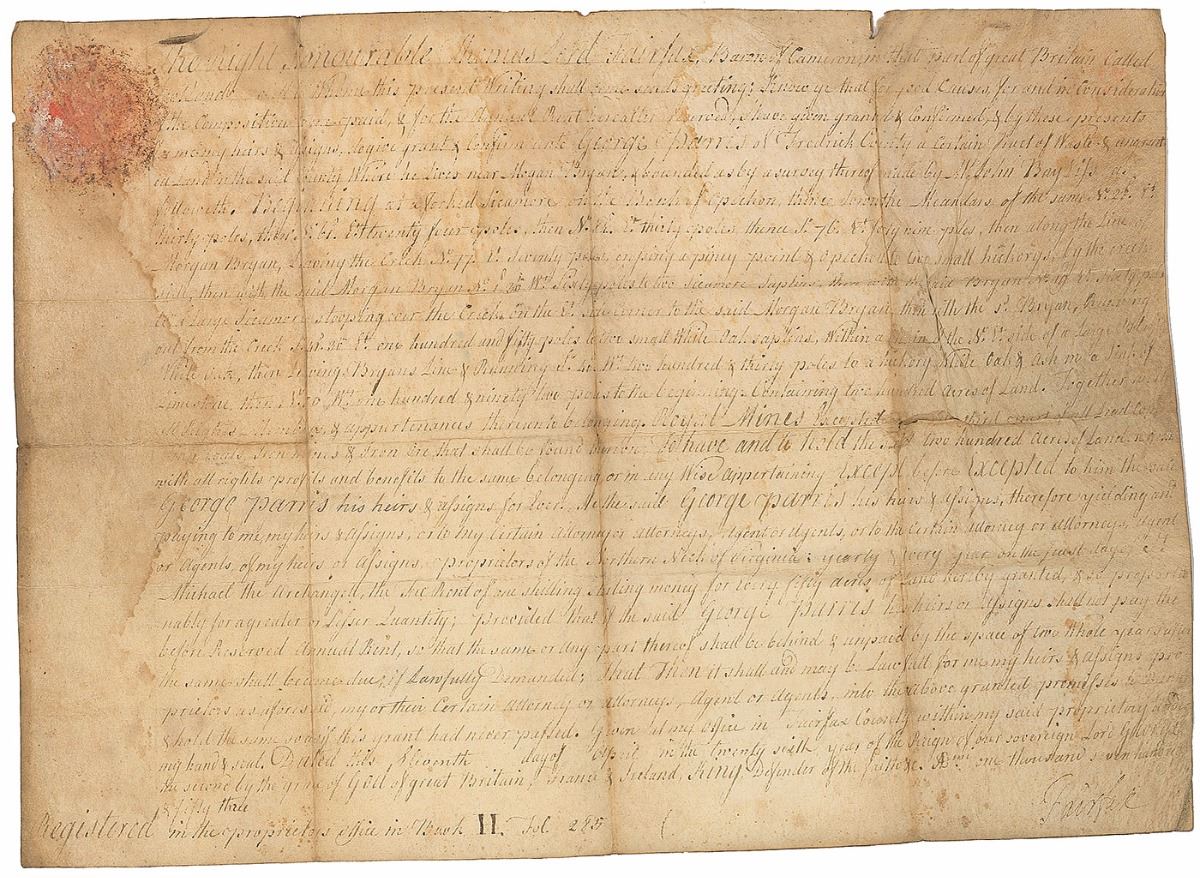 The Right Honourable Thomas Lord Fairfax, Baron of Cameron in that part of great Britain Called
To all to Whome this present Writing shall come sends greeting: Know ye that for good Causes, for and in Consideration
of the Composition to me paid, & for the Annual Rent hereafter reserved, I have given granted & confirmed, & by these presents
for me my heirs & assigns, do give grant & confirm unto George Parris of Fredrick County a Certain Tract of Waste & ungrant
ed Land in the said County Where he Lives near Morgan Bryans, & bounded as by a survey thereof made by Mr. John Baylis as
followeth. Beginning at a forked Sicamore on the Bank of Opeckon, thence down the Meanders of the same No. 25. Et.
thirty poles, then Et. twenty four poles, then No. Et. thirty poles, thence So. 76. forty nine poles, then along the Line of
Morgan Bryan, Leaving the Creek No. 77. Et. Seventy poles, on a piney point & Opeckon to two small hickorys, by the creek
side, then with the said Morgan Bryan No. Wt. Sixty poles to two Sicamore saplins, then with the said Bryan No. 19 Et. Sixty
to a Large Sicamore stooping over the Creek on the Et. Side corner to the said Morgan Bryan, then with the Sd. Bryan, Running
out from the Creek Et. one hundred and fifty poles to two small White Oak saplins, Within on the No. Et. side of a Large
White Oak, then Leaving Bryans Line & Running So. Wt. two hundred & thirty poles to a hickory White Oak & ash in a sink of
Limestone, then No. 50 Wt. one hundred & ninety two poles to the beginning. Containing two hundred acres of Land. Together with
all Rights & appurtenances thereunto belonging. Royal Mines Excepted third part of all Lead
Coals, Iron Mines & Iron Ore that shall be found thereon. To have and to hold the said two hundred acres of Land
with all rights profits and benefits to the same belonging or in any Wise appertaining Except before Excepted to him the said
George Parris his heirs & assigns for Ever. He the said George Parris his heirs & assigns, therefore yielding and
paying to me, my heirs & assigns, or to my Certain attorney or attorneys, Agent or Agents, or to the Certain attorney or attorneys, Agent
or Agents, of my heirs or assigns, proprietors of the Northern Neck of Virginia: yearly & every year on the feast day of St
Michael the Archangell, the Fee Rent of one shilling sterling money for every fifty acres of Land hereby granted, & so proportio
nably for a greater or Lesser Quantity; provided that if the said George Parris his heirs or assigns shall not pay the
before Reserved Annual Rent, so that the same or any part thereof shall be behind & unpaid by the space of two whole years after
the same shall become due, if Lawfully Demanded; that Then it shall and may be Lawfull for me my heirs & assigns pro
prietors as aforesaid, my or their Certain attorney or attorneys, Agent or Agents, into the above granted premisses to
& hold the same so as if this grant had never passed. Given at my office in Fairfax County within my said proprietary
my hand & seal. Dated this Eleventh day of April in the twenty sixth year of the Reign of our sovereign Lord George
the second by the grace of God of great Britain, France & Ireland, King Defender of the faith &c. one thousand seven hundred
& fifty three
Fairfax
Registered in the proprietors office in Book H. Fol. 285